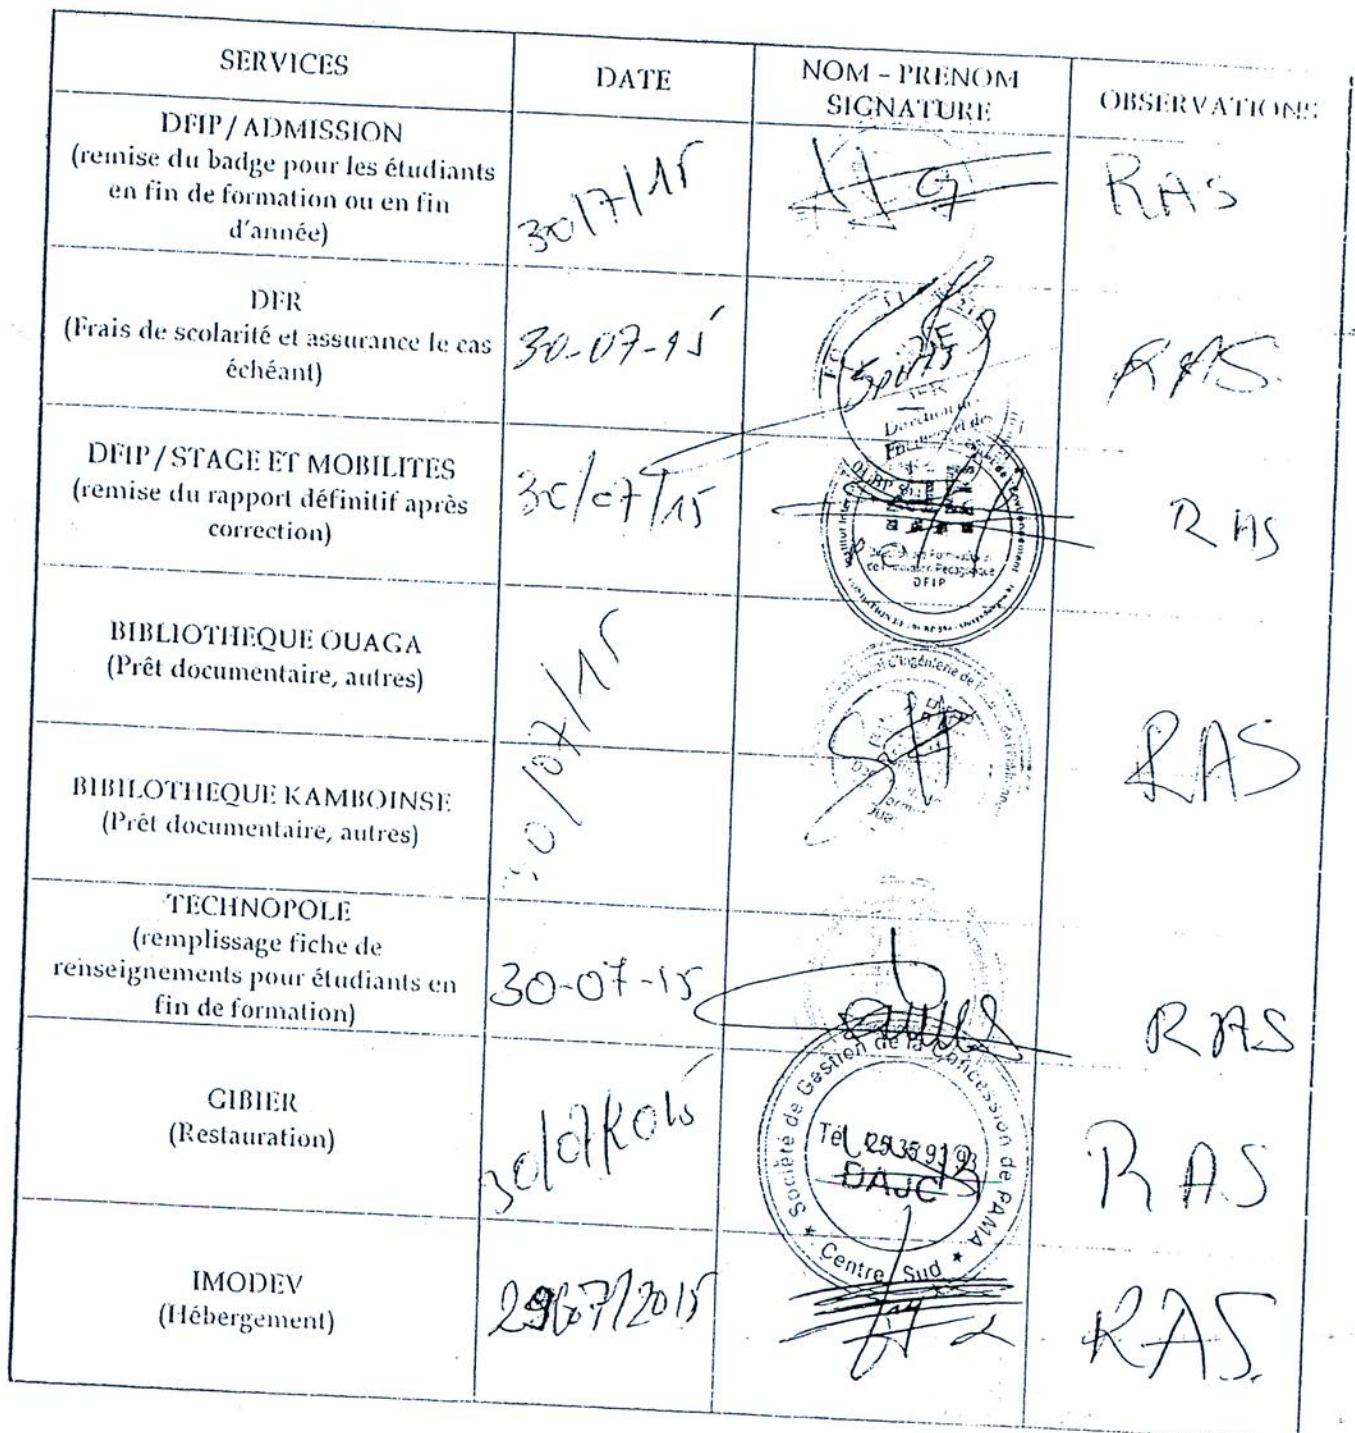 SERVICES
DATE
NOM – PRENOM
SIGNATURE
OBSERVATIONS
DFIP / ADMISSION
(remise du badge pour les étudiants
en fin de formation ou en fin
d'année)
30/7/15
RAS
DFR
(Frais de scolarité et assurance le cas
échéant)
30-07-15
Direction des
RAS
DFIP / STAGE ET MOBILITES
(remise du rapport définitif après
correction)
30/07/15
DFIP
RAS
BIBLIOTHEQUE OUAGA
(Prêt documentaire, autres)
30/07/15
d'Ingénierie de
RAS
BIBILOTHEQUE KAMBOINSE
(Prêt documentaire, autres)
TECHNOPOLE
(remplissage fiche de
renseignements pour étudiants en
fin de formation)
30-07-15
RAS
GIBIER
(Restauration)
30/07/2015
Société de Gestion de la Concession de PAMA
Tél
DAJC
* Centre Sud *
RAS
IMODEV
(Hébergement)
29/07/2015
RAS.